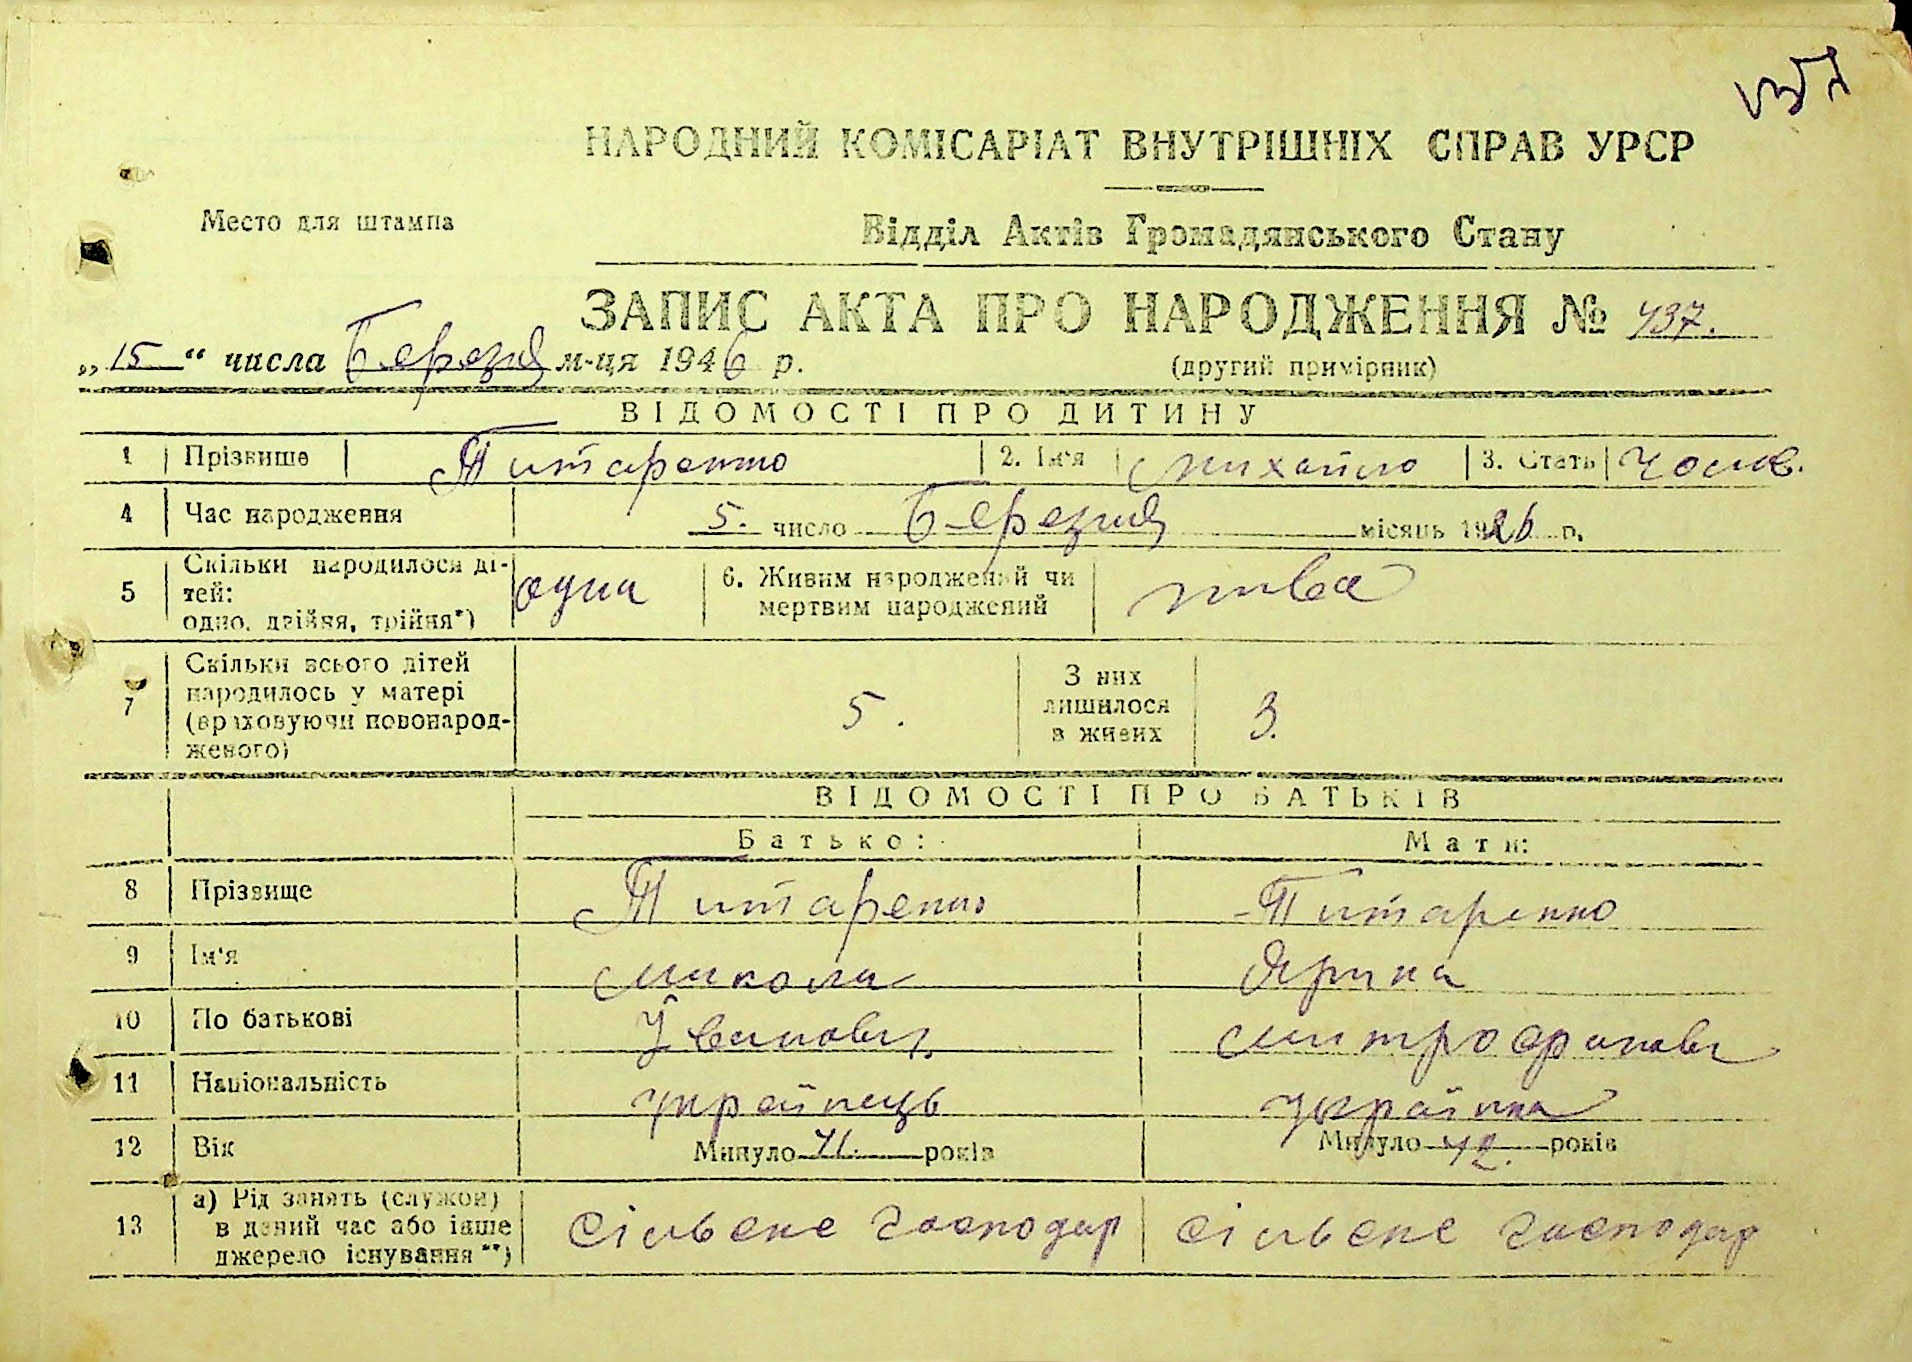 НАРОДНИЙ КОМІСАРІАТ ВНУТРІШНІХ СПРАВ УРСР
Место для штампа
Відділ Актів Громадянського Стану
ЗАПИС АКТА ПРО НАРОДЖЕННЯ № 437.
„15“ числа Березня м-ця 1946 р.
(другий примірник)
ВІДОМОСТІ ПРО ДИТИНУ
1 Прізвище Титаренко 2. Ім'я Михайло 3. Стать чолов.
4 Час народження 5. число Березня місяць 1926 р.
5 Скільки народилося ді-
тей:
одно, двійня, трійня*) одна
6. Живим народжений чи
мертвим народжений жива
7 Скільки всього дітей
народилось у матері
(враховуючи новонарод-
женого) 5.
З них
лишилося
в живих 3.
ВІДОМОСТІ ПРО БАТЬКІВ
Батько: Мати:
8 Прізвище Титаренко Титаренко
9 Ім'я Микола Ярина
10 По батькові Іванович Митрофанов
11 Національність українець українка
12 Вік Минуло 41. років Минуло 42. років
13 а) Рід занять (служби)
в даний час або інше
джерело існування**) сільське господар сільське господар